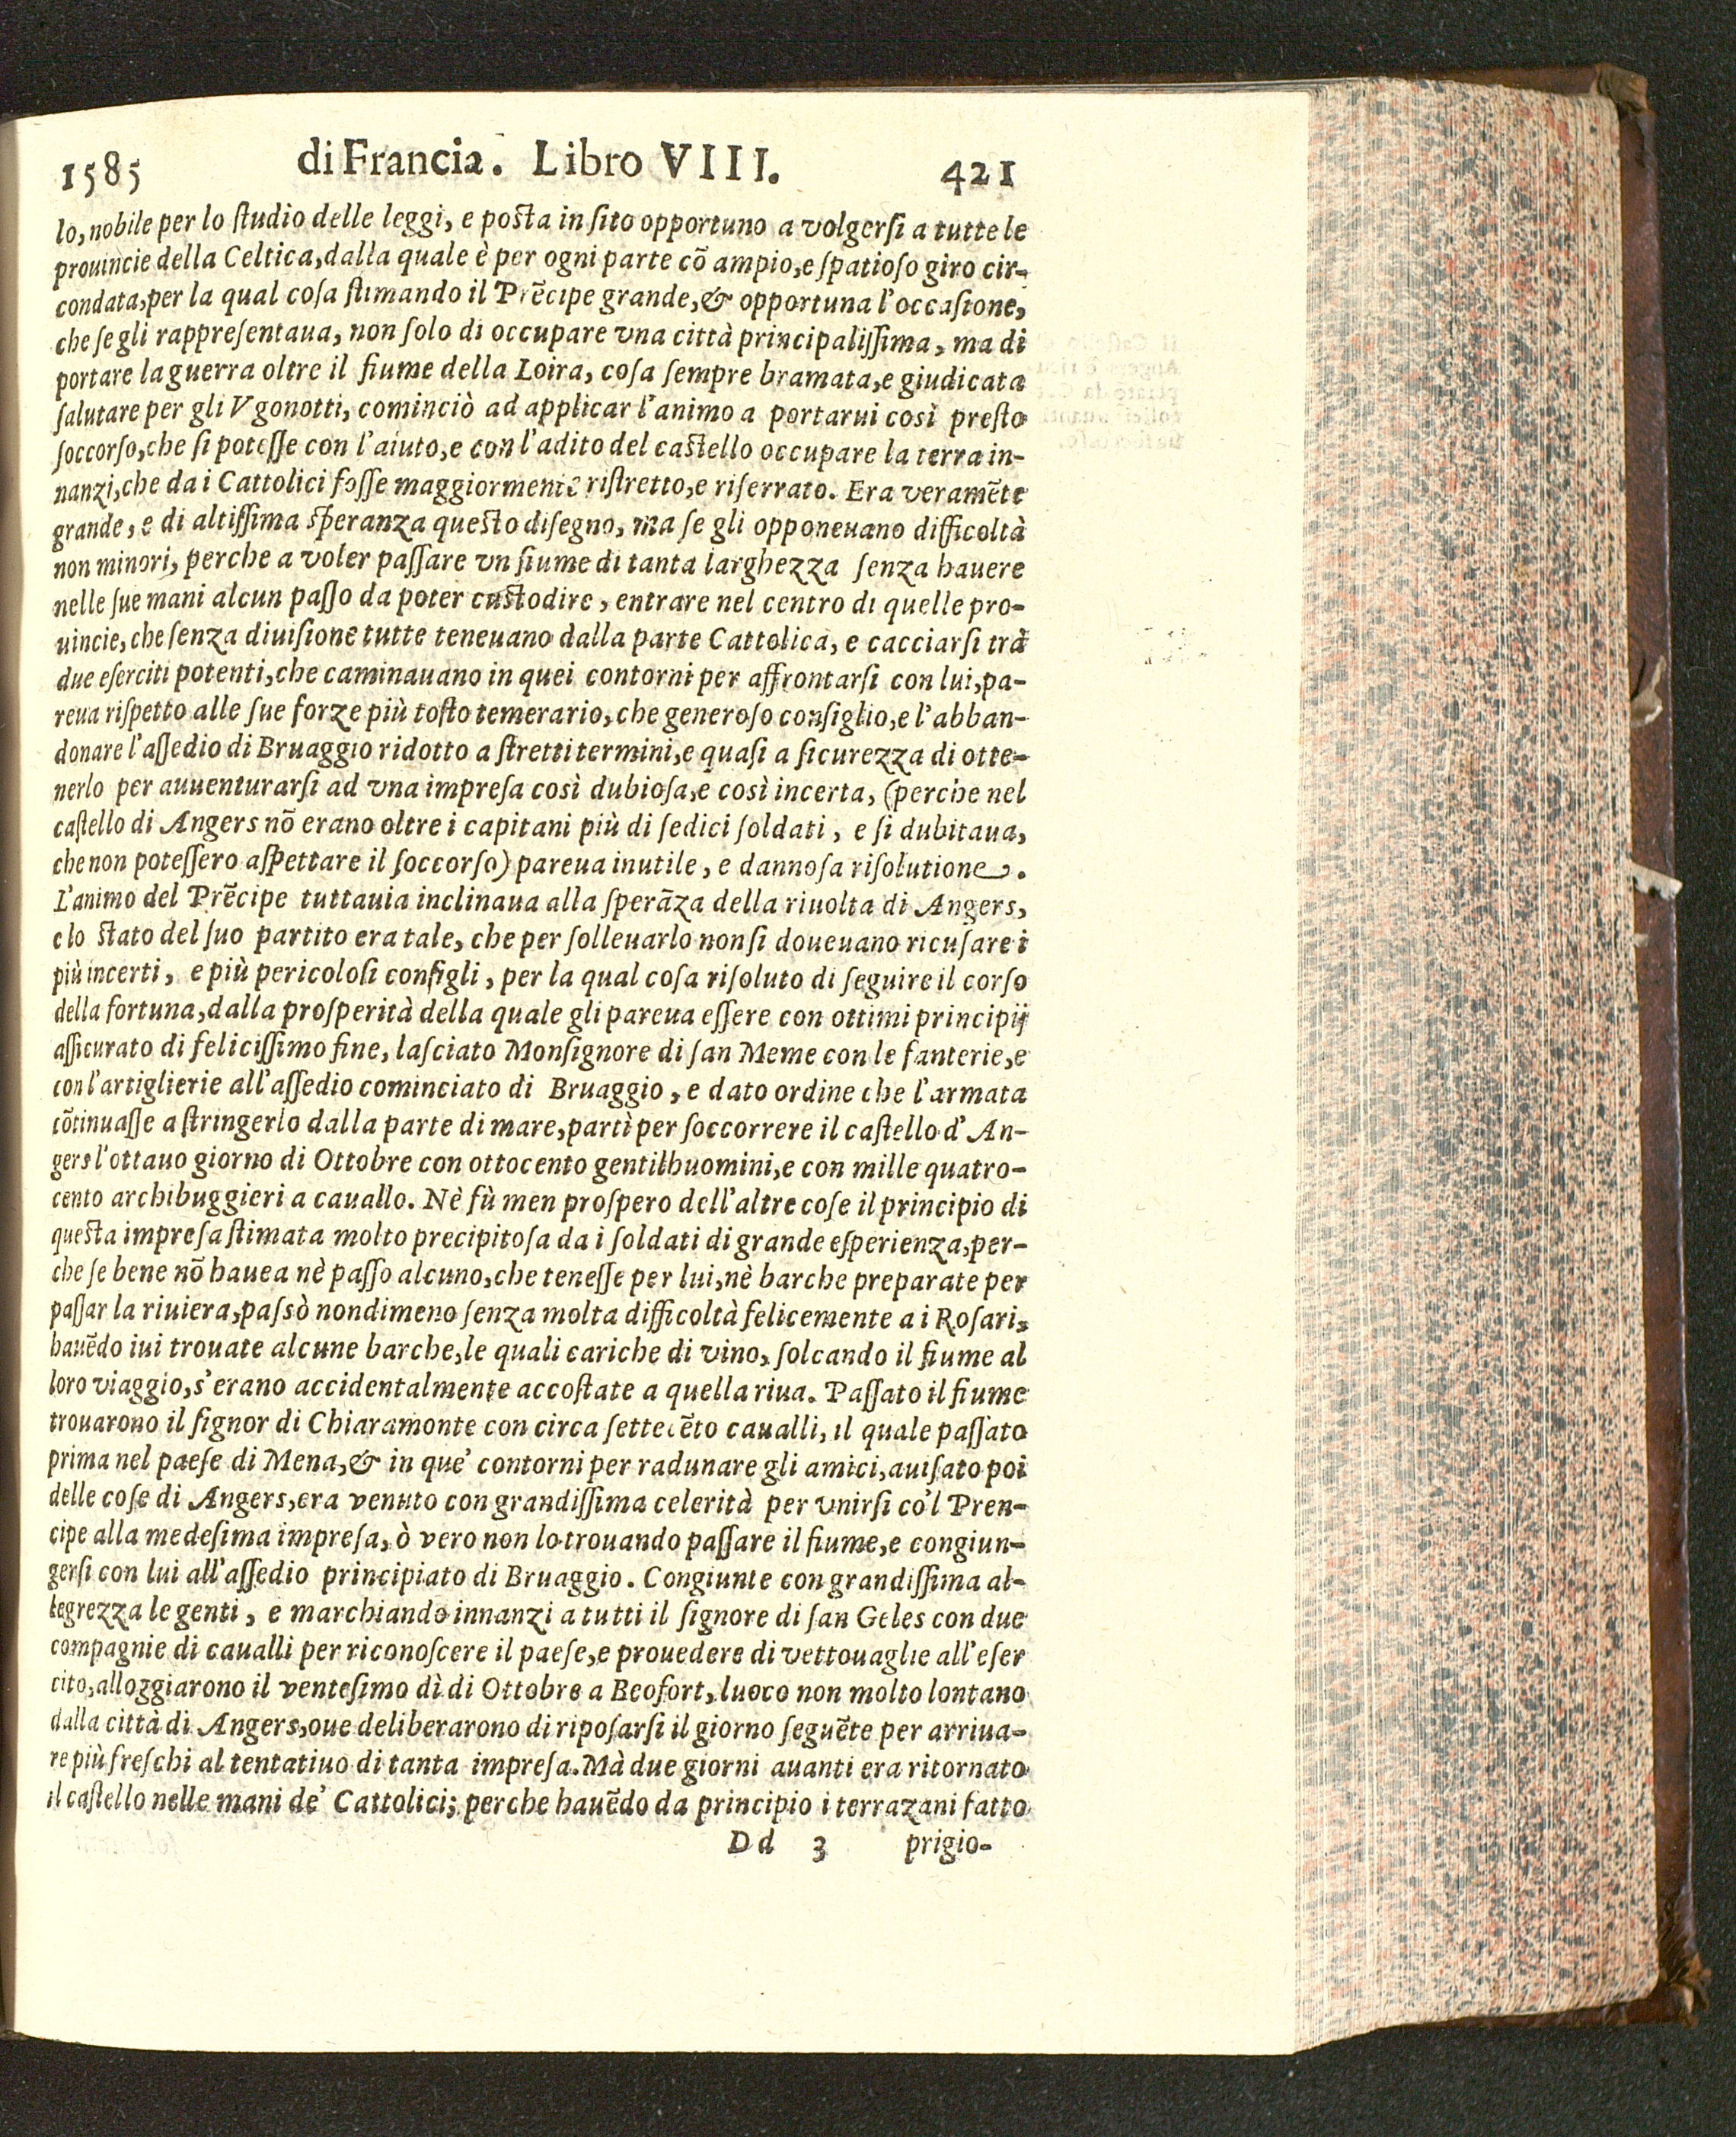 1585 di Francia. Libro VIII. 421
lo, nobile per lo ſtudio delle leggi, e poſta in ſito opportuno a volgerſi a tutte le
prouincie della Celtica, dalla quale è per ogni parte cõ ampio, e ſpatioſo giro cir-
condata, per la qual coſa ſtimando il Prẽcipe grande, & opportuna l'occaſione,
che ſe gli rappreſentaua, non ſolo di occupare vna città principaliſſima, ma di
portare la guerra oltre il fiume della Loira, coſa ſempre bramata, e giudicata
ſalutare per gli Vgonotti, cominciò ad applicar l'animo a portarui così preſto
ſoccorſo, che ſi poteſſe con l'aiuto, e con l'adito del caſtello occupare la terra in-
nanzi, che da i Cattolici foſſe maggiormente riſtretto, e riſerrato. Era veramẽte
grande, e di altiſſima ſperanza queſto diſegno, ma ſe gli opponeuano difficoltà
non minori, perche a voler paſſare vn fiume di tanta larghezza ſenza hauere
nelle ſue mani alcun paſſo da poter cuſtodire, entrare nel centro di quelle pro-
uincie, che ſenza diuiſione tutte teneuano dalla parte Cattolica, e cacciarſi trà
due eſerciti potenti, che caminauano in quei contorni per affrontarſi con lui, pa-
reua riſpetto alle ſue forze più toſto temerario, che generoſo conſiglio, e l'abban-
donare l'aſſedio di Bruaggio ridotto a ſtretti termini, e quaſi a ſicurezza di otte-
nerlo per auuenturarſi ad vna impreſa così dubioſa, e così incerta, (perche nel
caſtello di Angers nõ erano oltre i capitani più di ſedici ſoldati, e ſi dubitaua,
che non poteſſero aſpettare il ſoccorſo) pareua inutile, e dannoſa riſolutione.
L'animo del Prẽcipe tuttauia inclinaua alla ſperãza della riuolta di Angers,
e lo ſtato del ſuo partito era tale, che per ſolleuarlo non ſi doueuano ricuſare i
più incerti, e più pericoloſi conſigli, per la qual coſa riſoluto di ſeguire il corſo
della fortuna, dalla proſperità della quale gli pareua eſſere con ottimi principij
aſſicurato di feliciſſimo fine, laſciato Monſignore di ſan Meme con le fanterie, e
con l'artiglierie all'aſſedio cominciato di Bruaggio, e dato ordine che l'armata
cõtinuaſſe a ſtringerlo dalla parte di mare, partì per ſoccorrere il caſtello d'An-
gers l'ottauo giorno di Ottobre con ottocento gentilhuomini, e con mille quatro-
cento archibuggieri a cauallo. Nè fù men proſpero dell'altre coſe il principio di
queſta impreſa ſtimata molto precipitoſa da i ſoldati di grande eſperienza, per-
che ſe bene nõ hauea nè paſſo alcuno, che teneſſe per lui, nè barche preparate per
paſſar la riuiera, paſsò nondimeno ſenza molta difficoltà felicemente a i Roſari,
hauẽdo iui trouate alcune barche, le quali cariche di vino, ſolcando il fiume al
loro viaggio, s'erano accidentalmente accoſtate a quella riua. Paſſato il fiume
trouarono il ſignor di Chiaramonte con circa ſettecẽto caualli, il quale paſſato
prima nel paeſe di Mena, & in que' contorni per radunare gli amici, auiſato poi
delle coſe di Angers, era venuto con grandiſſima celerità per vnirſi co'l Pren-
cipe alla medeſima impreſa, ò vero non lo trouando paſſare il fiume, e congiun-
gerſi con lui all'aſſedio principiato di Bruaggio. Congiunte con grandiſſima al-
legrezza le genti, e marchiando innanzi a tutti il ſignore di ſan Geles con due
compagnie di caualli per riconoſcere il paeſe, e prouedere di vettouaglie all'eſer
cito, alloggiarono il venteſimo dì di Ottobre a Beofort, luoco non molto lontano
dalla città di Angers, oue deliberarono di ripoſarſi il giorno ſeguẽte per arriua-
re più freſchi al tentatiuo di tanta impreſa. Mà due giorni auanti era ritornato
il caſtello nelle mani de' Cattolici; perche hauẽdo da principio i terrazani fatto
Dd 3 prigio-